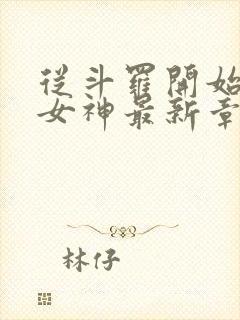 從斗羅開始
女神最新章
林仔